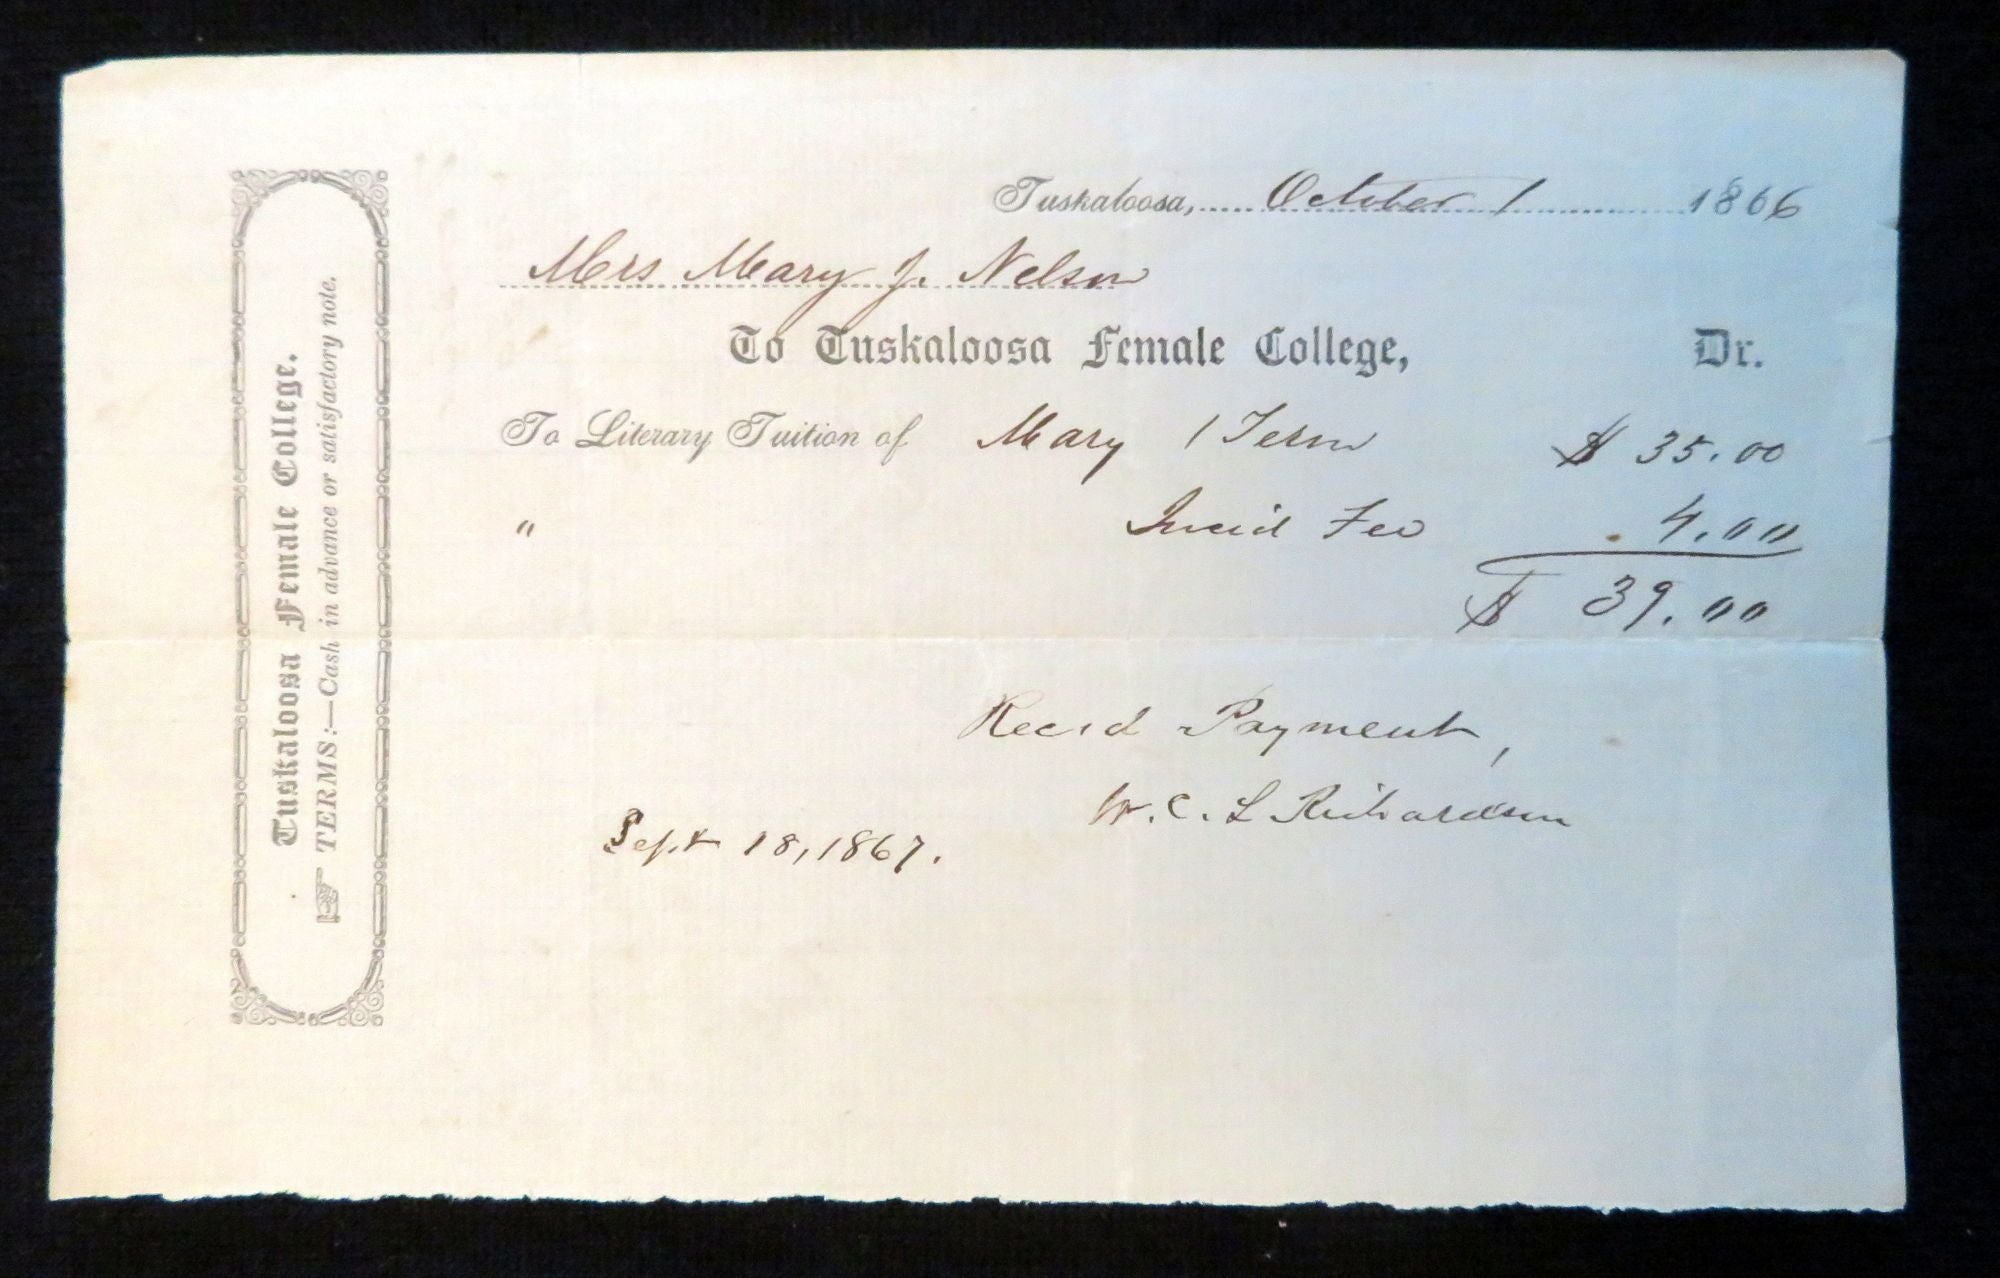 Tuskaloosa, October 1 1866
Mrs Mary J. Nelson
To Tuskaloosa Female College, Dr.
To Literary Tuition of Mary 1 Term $ 35.00
" Incid Fee 4.00
$ 39.00
Rec'd Payment,
W. C. L Richardson
Sept 18, 1867.
Tuskaloosa Female College.
☞ TERMS:—Cash in advance or satisfactory note.